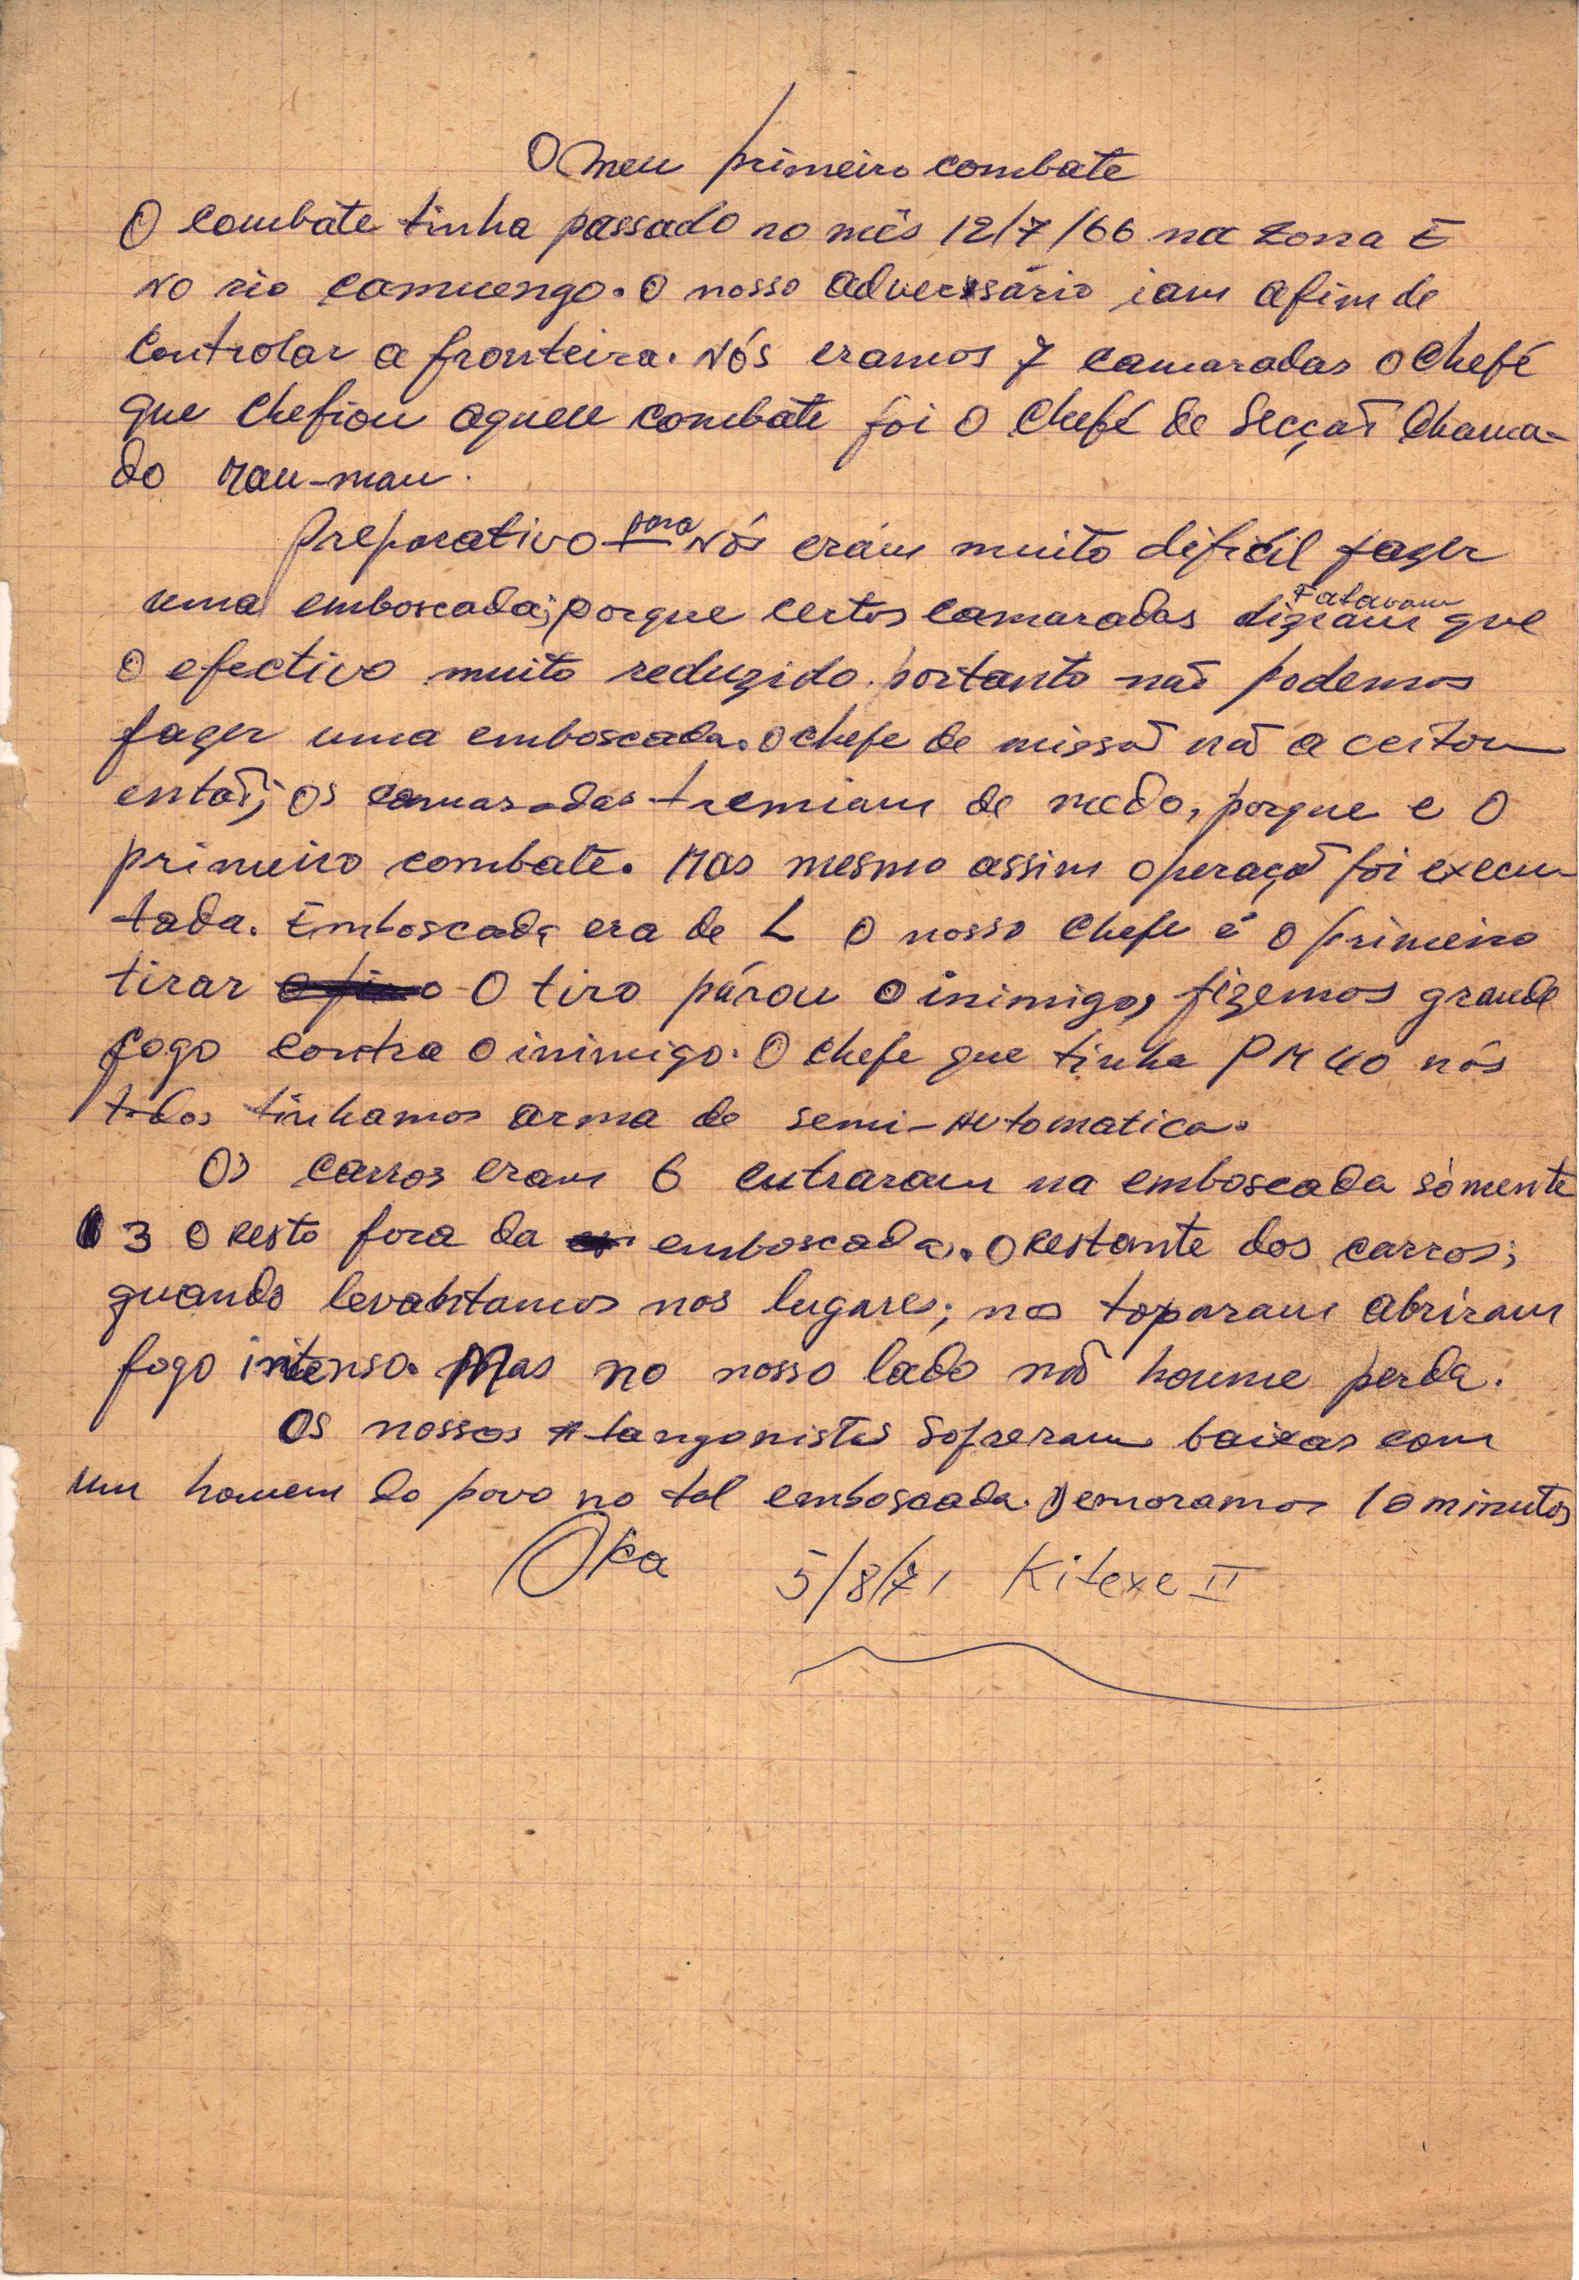 O meu primeiro combate
O combate tinha passado no mês 12/7/66 na zona E
no rio camuengo. O nosso adversário iam afim de
controlar a fronteira. Nós eramos 7 camaradas o chefé
que chefiou aquele combate foi o chefé de Secção chama-
do Mau-mau.
Preparativo para Nós erám muito dificil fazer
uma emboscada; porque certos camaradas diziam Falavam que
o efectivo muito reduzido. portanto não podemos
fazer uma emboscada. o chefe de missão não a ceitou
então; os camaradas tremiam de medo, porque e o
primeiro combate. Mas mesmo assim operação foi execu-
tada. Emboscada era de L o nosso chefe é o primeiro
tirar o tiro párou o inimigo, fizemos grande
fogo contra o inimigo. O chefe que tinha PM 40 nós
todos tinhamos arma de semi-automatica.
Os carros eram 6 entraram na emboscada sòmente
3 o resto fora da emboscada. o restante dos carros;
quando levantamos nos lugares; nos toparam abriram
fogo intenso. Mas no nosso lado não houve perda.
Os nossos tangonistas sofreram baixas com
um homem do povo no tal emboscada. Demoramos 10 minutos
Oka 5/8/71 Kitexe II